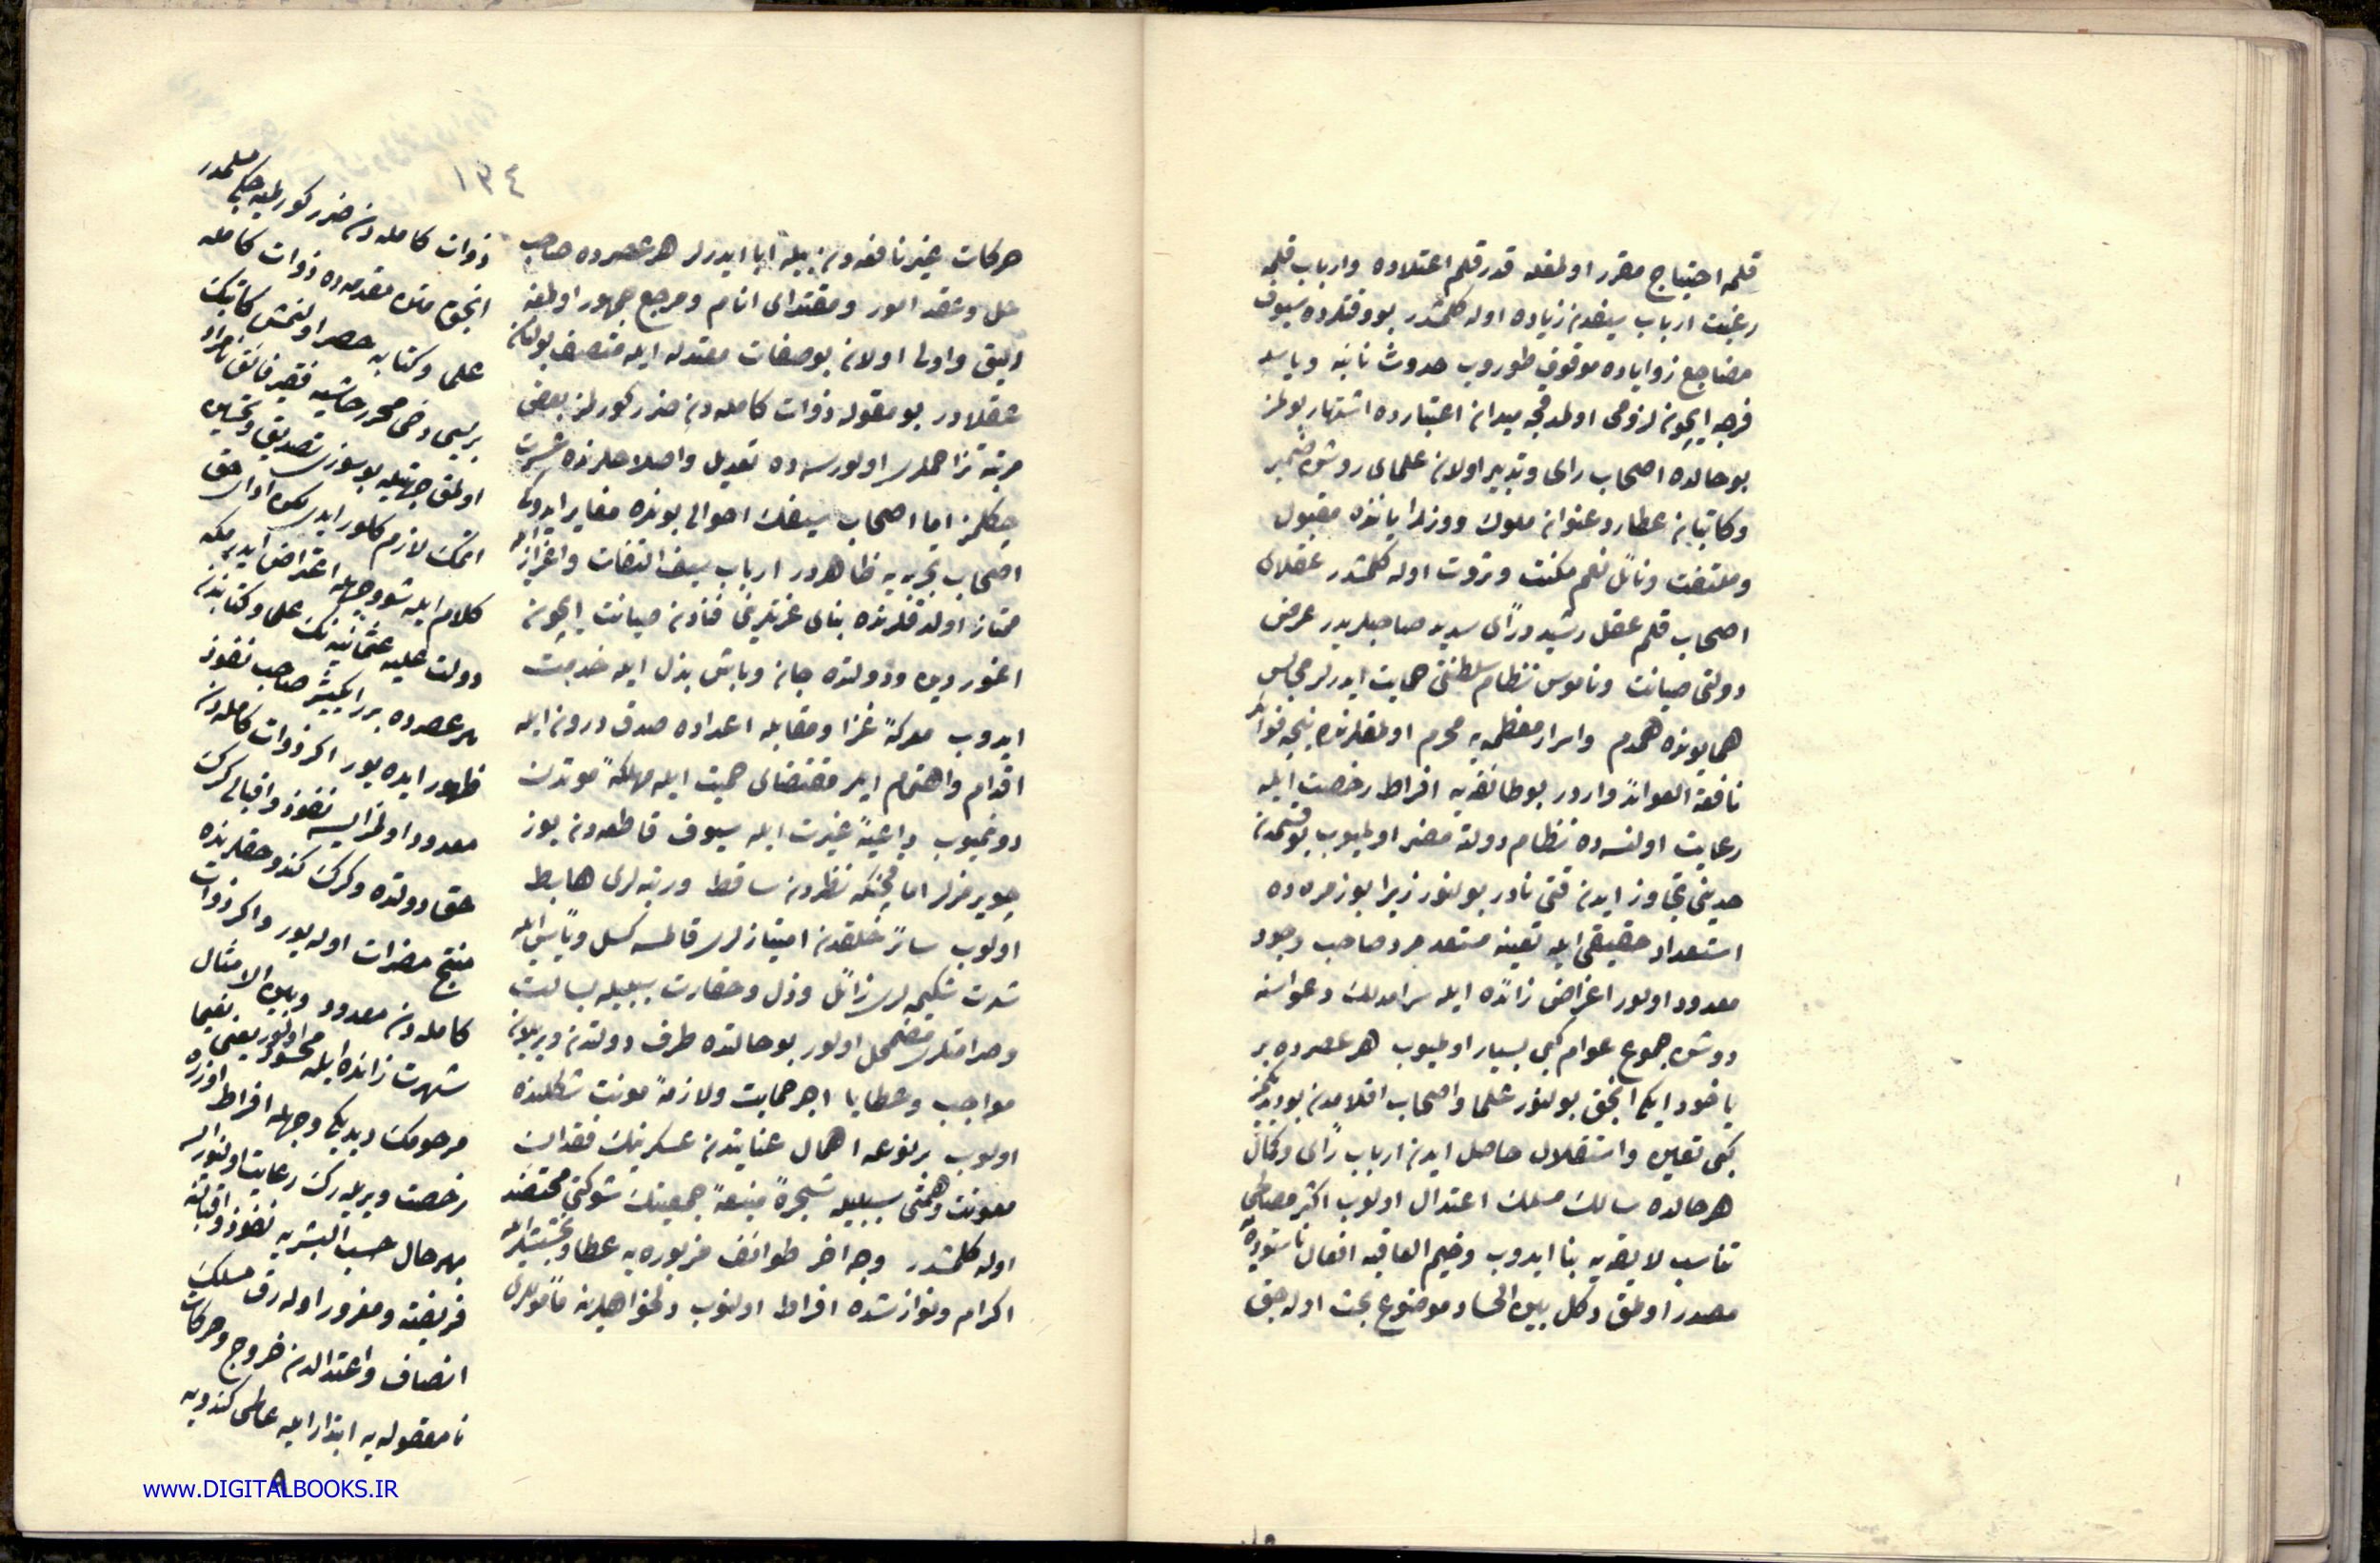 قلمه احتياج مقرر اولمغله قدر قلم اعتلاده وارباب قلمه
رغبت ارباب سيفدن زياده اوله كلمشدر بو وقتلرده سيوف
مضاجع زواياده موقوف طوروب حدوث نائبه وياسله
فرجه ايچون لزومى اولمدقچه ميدان اعتبارده اشتهار بولمز
بو حالده اصحاب راى وتدبير اولان علماى روشن ضمير
وكاتبان عطارد عنوان ملوك ووزرا ياننده مقبول
وملتفت ونائل نعم مكنت وثروت اوله كلمشدر عقلاى
اصحاب قلم عقل رشيد وراى سديد صاحبلريدر عرض
دولتى صيانت وناموس نظام سلطنتى حمايت ايدرلر مجالس
همايونده همدم واسرار معظمه يه محرم اولمغلرنده نيجه فوائد
نافعة العوائد واردر بو طائفه يه افراط رخصت ايله
رعايت اولنسه ده نظام دولته مضر اولميوب بو قسمدن
حدينى تجاوز ايدن قتى نادر بولنور زيرا بو زمره ده
استعداد حقيقى ايله تعينه مستعد مرد صاحب وجود
معدود اولور اغراض زائده ايله سرامدلك دعواسنه
دوشن جموع عوام كبى بسيار اولميوب هر عصرده بر
ياخود ايكى انجق بولنور علما واصحاب اقلامدن بو ديديكمز
كبى تعين واستقلال حاصل ايدن ارباب راى وكمال
هر حالده سالك مسلك اعتدال اولوب اكثر مصالحى
تناسب لايقه يه بنا ايدوب وخيم العاقبه افعال ناستوده يه
مصدر اولمق دكل بين الحساد موضوع بحث اوله جق
١٣٤
حركات غير نافعه دن بيله ابا ايدرلر هر عصرده صاحب
حل وعقد امور ومقتداى انام ومرجع جمهور اولمغه
اليق واولى اولان بو صفات معتدله ايله متصف بولنان
عقلادر بو مقوله ذوات كامله دن ضرر كورلمز بعض
مرتبه تزاحملرى اولورسه ده تعديل واصلاحلرنده عسرت
چكلمز اما اصحاب سيفك احوالى بونده مغاير ايدوكى
اصحاب تجربه يه ظاهردر ارباب سيف التفات واعزاز ايله
ممتاز اولدقلرنده بناى عزتلرينى فنادن صيانت ايچون
اغور دين ودولتده جان وباش بذل ايله خدمت
ايدوب معركه غزا ومقابله اعداده صدق درون ايله
اقدام واهتمام ايدر مقتضاى حميت ايله مهلكه موتدن
دونميوب داعيه غيرت ايله سيوف قاطعه دن يوز
چويرمزلر اما فجنكه نظردن ساقط ورتبه لرى هابط
اولوب سائر خلقدن امتيازلرى قالمسه كسل وياس ايله
شدت شكيمه لرى زائل وذل وحقارت سببيله بسالت
وصرامتلرى مضمحل اولور بو حالتده طرف دولتدن ويريلان
مواجب وعطايا اجر حمايت ولازمه مونت شكلنده
اولوب بر نوعه اهمال عنايتدن عسكرينك فقدان
معونت وهمتى سببيله شجره منيعه جمعيتك شوكتى مختضد
اوله كلمشدر وجه اخر طوائف مزبوره يه عطا وبخشيش ايله
اكرام ونوازشده افراط اولنوب دلخواهلرينه مأموللرى
مسلمدر
ذوات كامله دن ضرر كورلميه جكى
انجق متن مقدمه ده ذوات كامله
علما وكتابه حصر اولنمش كاتبك
بريسى دخى محرر حاشيه فقير فائق نامراد
اولمق جهتيله بو سوزى تصديق وتحسين
اتمك لازم كلور ايدى لكن اداى حق
كلام ايله شو وجهله اعتراض ايدرمكه
دولت عليه عثمانيه نك علما وكتابندن
هر عصرده برر ايكيشر صاحب نفوذ
ظهور ايده يور اكر ذوات كامله دن
معدود اولنرايسه نفوذ واقبالى كرك
حق دولتده وكرك كندو حقلرنده
منتج مضرات اوله يور واكر ذوات
كامله دن معدود وبين الامثال
شهرت زائده ايله محسود اولور يعنى نعيما
مرحومك ديديكى وجهله افراط اوزره
رخصت ويريله رك رعايت اولنورايسه
بهرحال حسب البشريه نفوذ واقبالنه
فريفته ومغرور اوله رق مسلك
انصاف واعتدالدن خروج وحركات
نامعقوله يه ابتدار ايله عاطى كندويه
www.DIGITALBOOKS.IR